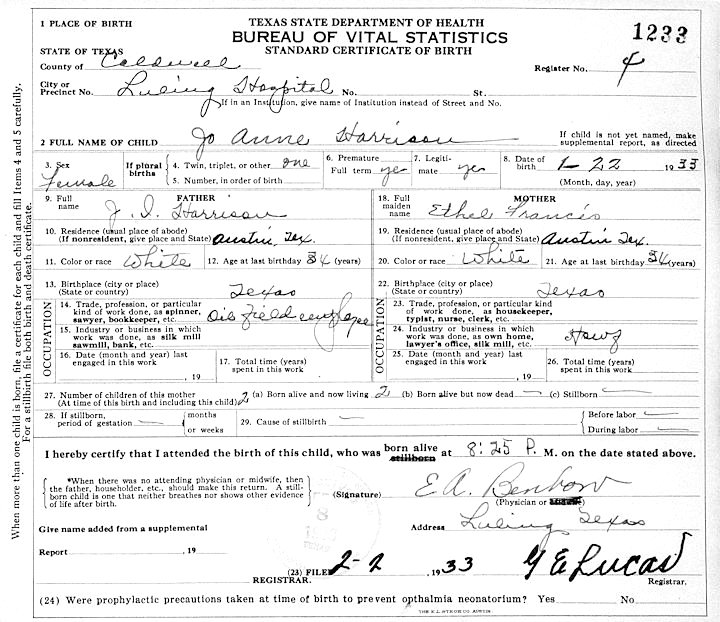 1 PLACE OF BIRTH
TEXAS STATE DEPARTMENT OF HEALTH
BUREAU OF VITAL STATISTICS
STANDARD CERTIFICATE OF BIRTH
1233
STATE OF TEXAS
County of Caldwell
Register No. 4
City or
Precinct No. Luling Hospital No. St.
If in an Institution, give name of Institution instead of Street and No.
2 FULL NAME OF CHILD Jo Anne Harrison
If child is not yet named, make
supplemental report, as directed
3. Sex Female
If plural births
4. Twin, triplet, or other one
5. Number, in order of birth
6. Premature
Full term yes
7. Legiti-
mate yes
8. Date of
birth 1-22 1933
(Month, day, year)
FATHER
9. Full
name J. I. Harrison
10. Residence (usual place of abode)
(If nonresident, give place and State) Austin, Tex.
11. Color or race White 12. Age at last birthday 34 (years)
13. Birthplace (city or place)
(State or country) Texas
OCCUPATION
14. Trade, profession, or particular
kind of work done, as spinner,
sawyer, bookkeeper, etc. Oil field employee
15. Industry or business in which
work was done, as silk mill
sawmill, bank, etc.
16. Date (month and year) last
engaged in this work
, 19
17. Total time (years)
spent in this work
MOTHER
18. Full
maiden
name Ethel Francis
19. Residence (usual place of abode)
(If nonresident, give place and State) Austin Tex.
20. Color or race White 21. Age at last birthday 34 (years)
22. Birthplace (city or place)
(State or country) Texas
OCCUPATION
23. Trade, profession, or particular kind
of work done, as housekeeper,
typist, nurse, clerk, etc.
24. Industry or business in which
work was done, as own home,
lawyer's office, silk mill, etc.
25. Date (month and year) last
engaged in this work
, 19
26. Total time (years)
spent in this work
27. Number of children of this mother
(At time of this birth and including this child) 2 (a) Born alive and now living 2 (b) Born alive but now dead — (c) Stillborn —
28. If stillborn,
period of gestation —
months
or weeks
29. Cause of stillbirth —
Before labor —
During labor —
I hereby certify that I attended the birth of this child, who was born alive at 8:25 P. M. on the date stated above.
stillborn
*When there was no attending physician or midwife, then
the father, householder, etc., should make this return. A still-
born child is one that neither breathes nor shows other evidence
of life after birth.
(Signature) E.A. Benbow
(Physician or midwife)
Give name added from a supplemental
Address Luling Texas
Report , 19
(23) FILED 2-2, 1933 G E Lucas
REGISTRAR.
Registrar.
(24) Were prophylactic precautions taken at time of birth to prevent opthalmia neonatorium? Yes No
THE E.L. STECK CO. AUSTIN
When more than one child is born, file a certificate for each child and fill Items 4 and 5 carefully.
For a stillbirth file both birth and death certificate.